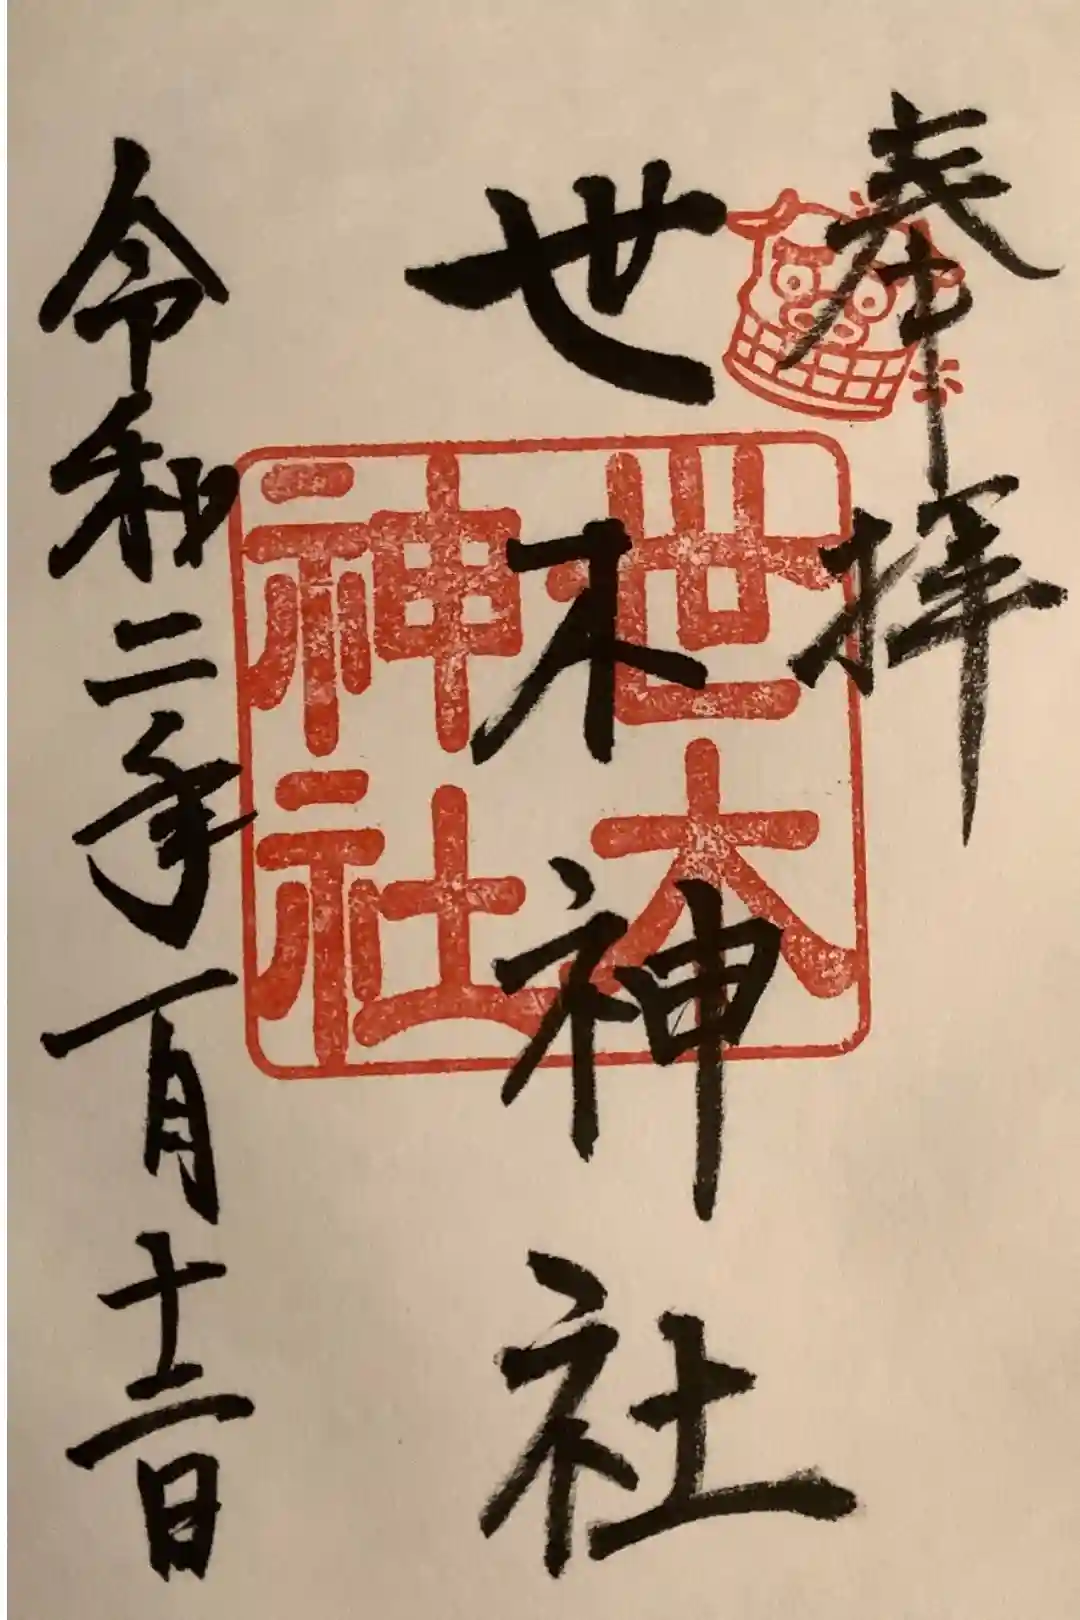 奉拝
世木神社
世木
神社
令和二年一月十二日